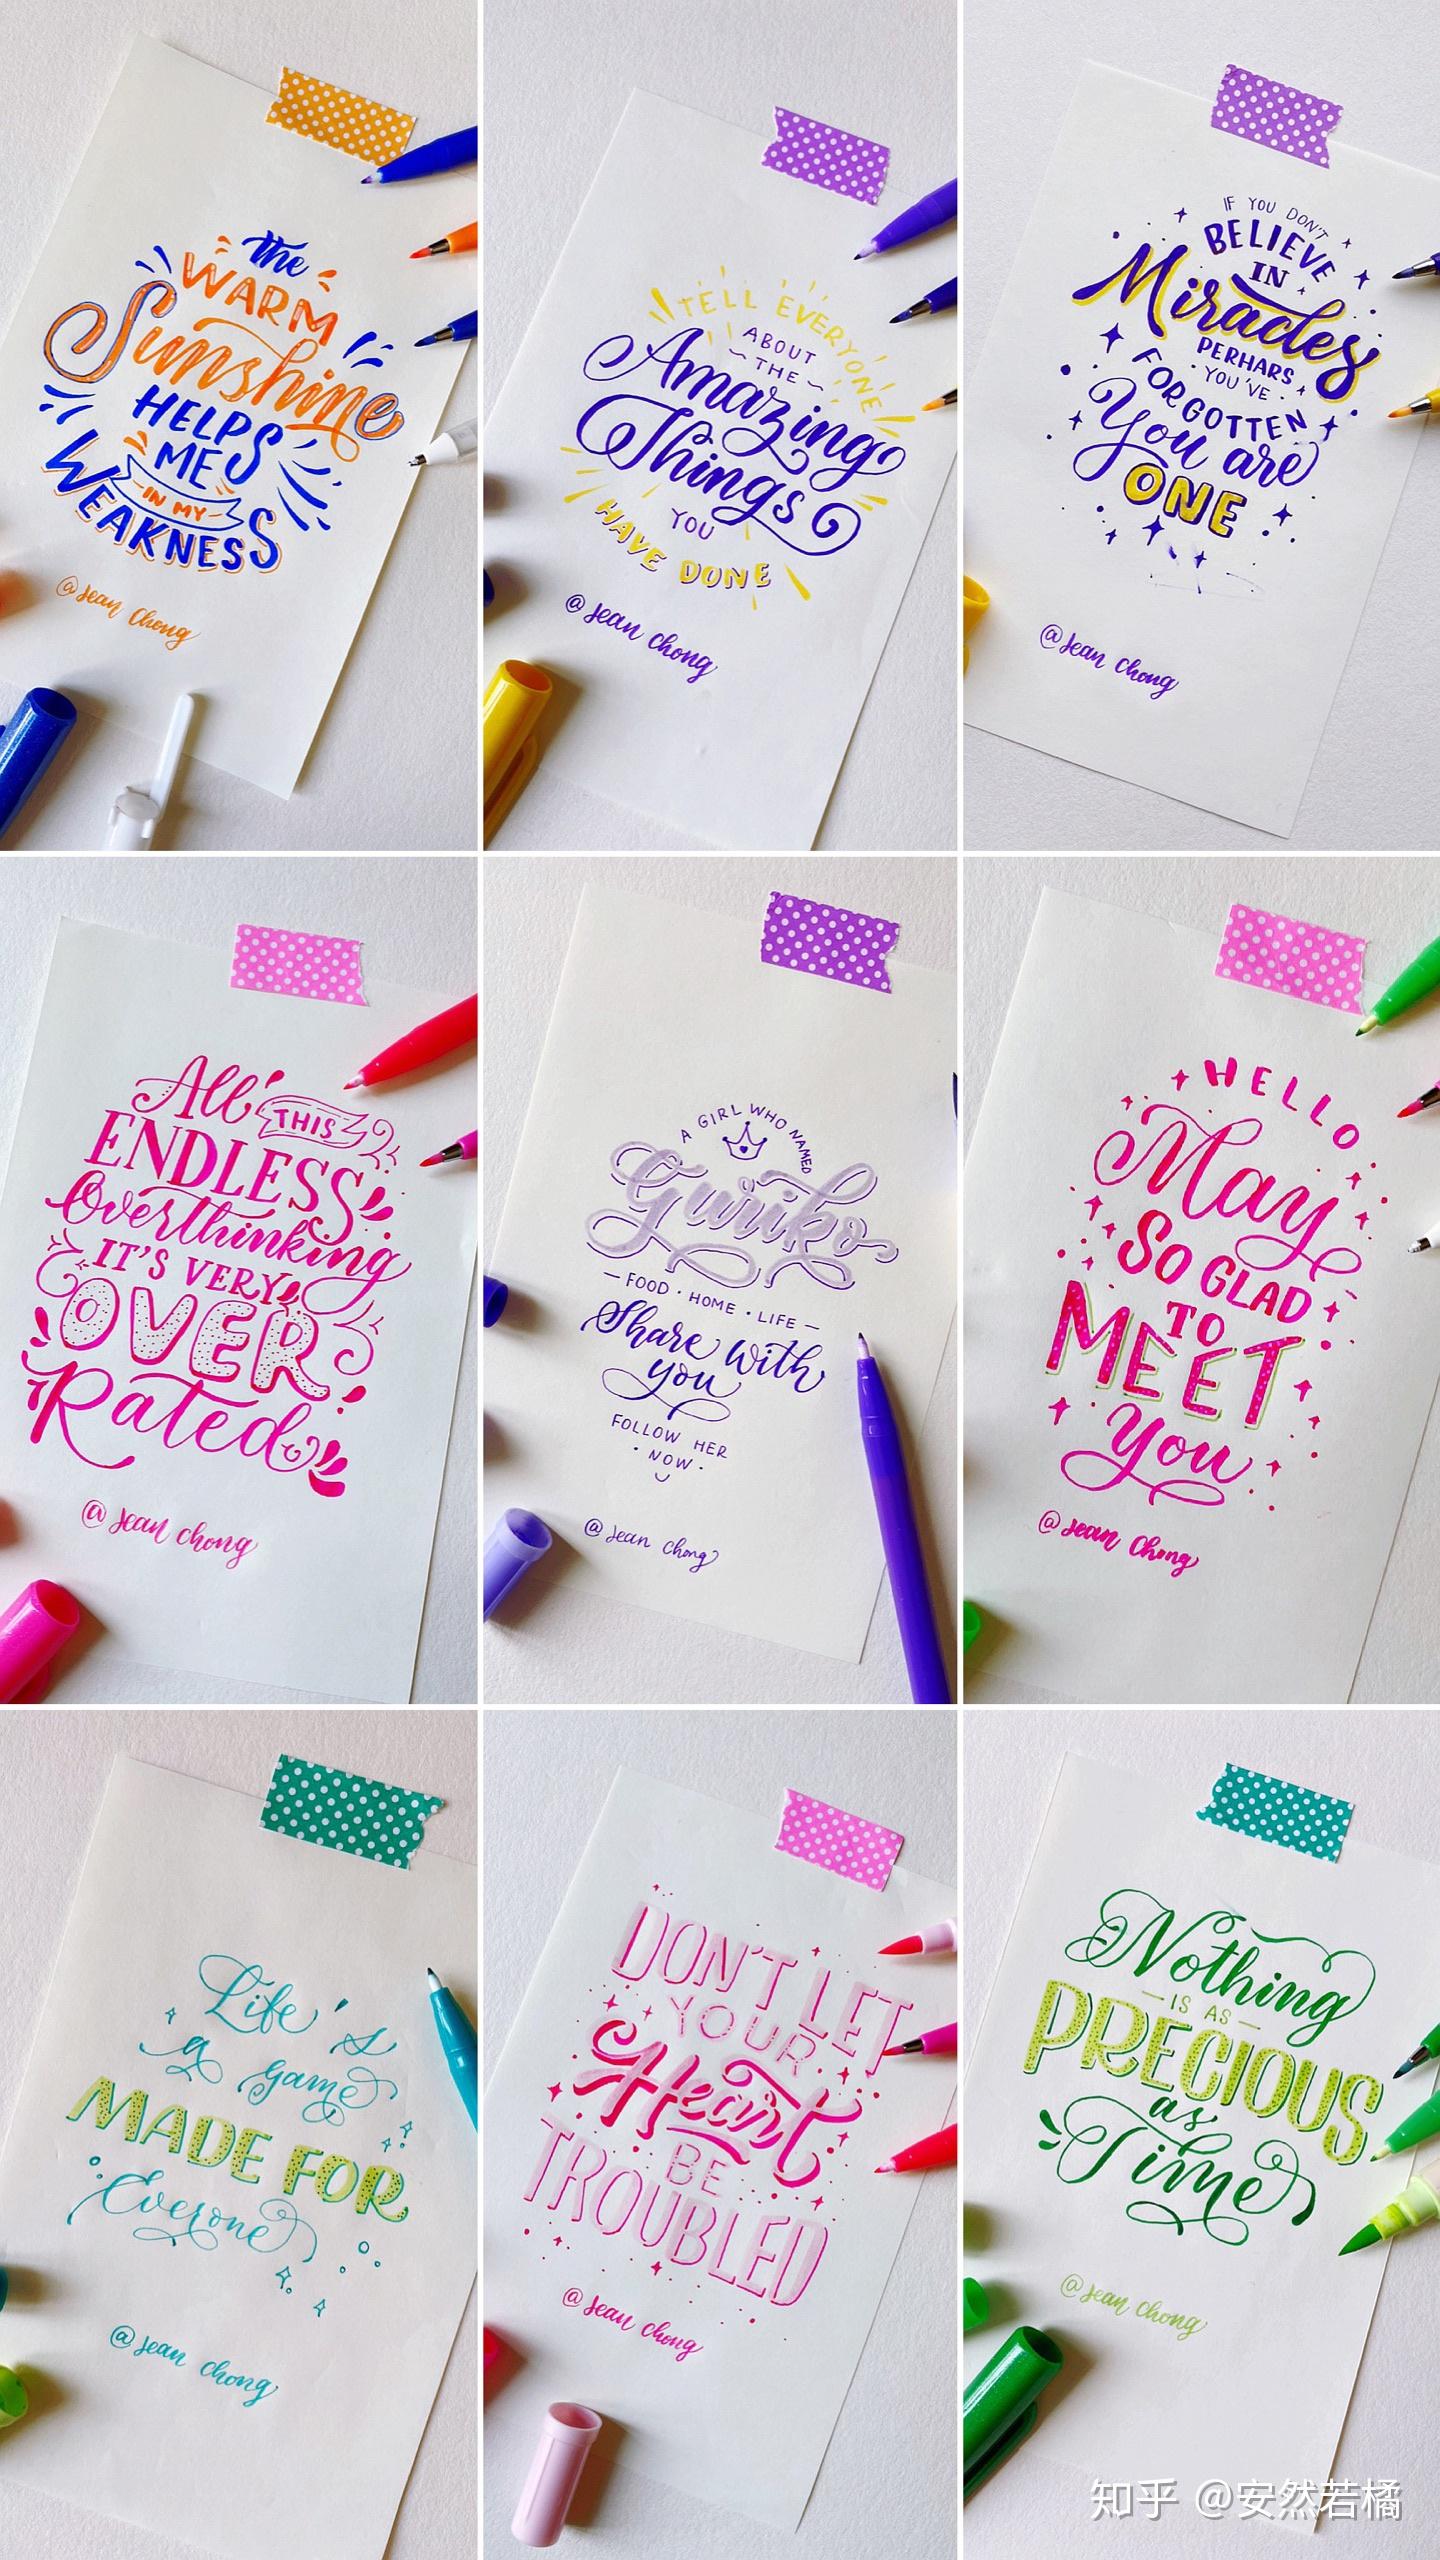 the
WARM
Sunshine
HELPS
ME
IN MY
WEAKNESS
@Jean Chong
TELL EVERYONE
ABOUT
THE
Amazing
Things
YOU
HAVE DONE
@Jean Chong
IF YOU DON'T
BELIEVE
IN
Miracles
PERHARS
YOU'VE
FORGOTTEN
You are
ONE
@Jean Chong
All THIS
ENDLESS
Overthinking
IT'S VERY
OVER
Rated
@Jean Chong
A GIRL WHO NAMED
Guriko
FOOD · HOME · LIFE
Share With
you
FOLLOW HER
· NOW ·
@Jean Chong
HELLO
May
SO GLAD
TO
MEET
You
@Jean Chong
Life's
a game
MADE FOR
Everone
@Jean Chong
DON'T LET
YOUR
Heart
BE
TROUBLED
@Jean Chong
Nothing
IS AS
PRECIOUS
as
Time
@Jean Chong
知乎 @安然若橘